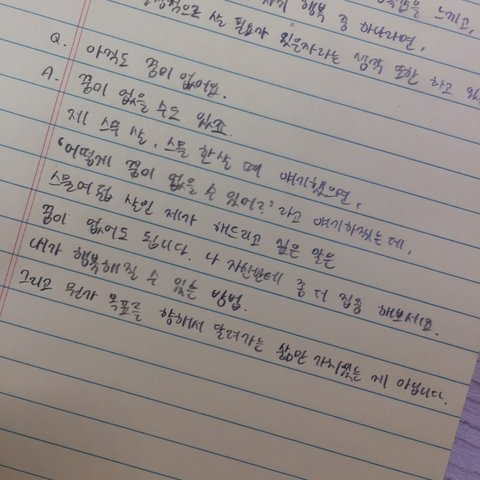 행복 중 하나라면,
으로 살 필요가 있을까라는 생각 또한 하고
Q. 아직도 꿈이 없어요.
A. 꿈이 없을 수도 있죠.
제 스무 살, 스물 한살 때 얘기했으면,
"어떻게 꿈이 없을 수 있어?"라고 얘기하겠는데,
스물여덟 살인 제가 해드리고 싶은 말은
꿈이 없어도 됩니다. 나 자신한테 좀 더 집중 해보세요.
내가 행복해질 수 있는 방법.
그리고 뭔가 목표를 향해서 달려가는 삶만 가치있는 게 아닙니다.